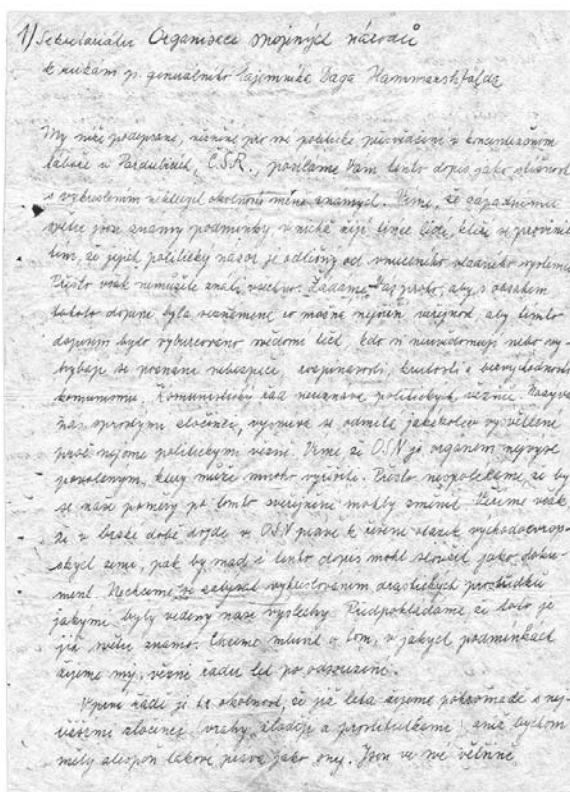 1) Sekretariátu Organisace spojených národů
k rukám p. generálního tajemníka Daga Hammarskjölda
My níže podepsané, vězněné pro své politické přesvědčení v koncentračním
táboře v Pardubicích, ČSR., posíláme Vám tento dopis, jako stížnost
s vykreslením některých okolností méně známých. Víme, že západnímu
světu jsou známy podmínky, v nichž žijí tisíce lidí, kteří se provinili
tím, že jejich politický názor je odlišný od vnuceného vládního systemu.
Přesto však nemůžete znáti všechno. Žádáme Vás proto, aby s obsahem
tohoto dopisu byla seznámena co možná nejširší veřejnost, aby tímto
dopisem bylo vyburcováno vědomí lidí, kdo si neuvědomují nebo vy-
hýbají se poznání nebezpečí, rozpínavosti, krutosti a bezvýhodnosti
komunismu. Komunistický řád neuznává politických vězňů. Nazývá
nás sprostými zločinci, vysmívá se odmítá jakékoliv vysvětlení
proč nejsme politickými vězni. Víme že OSN je orgánem nejvýše
povolaným, který může mnoho vyřešit. Přesto nespoléháme, že by
se naše poměry po tomto zveřejnění mohly změnit. Věříme však,
že v brzké době dojde v OSN právě k řešení otázek východoevrop-
ských zemí, pak by snad i tento dopis mohl sloužit jako doku-
ment. Nechceme se zabývat vykreslováním drastických prostředků
jakými byly vedeny naše výslechy. Předpokládáme, že toto je
již světu známo. Chceme mluvit o tom, v jakých podmínkách
žijeme my, vězni řadu let po odsouzení.
V první řadě je to okolnost, že již léta žijeme pohromadě s nej-
těžšími zločinci (vrahy, zloději a prostitutkami) aniž bychom
měly alespoň taková práva jako ony. Jsou ve své většině